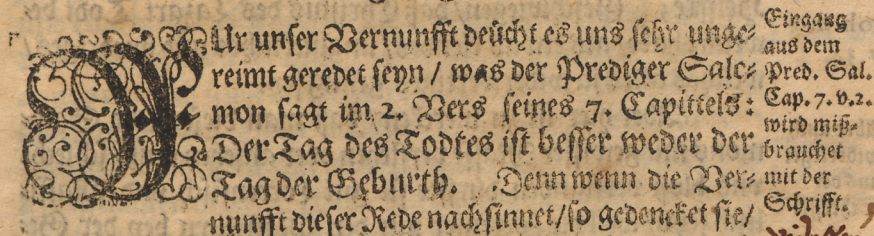 VUr unser Vernunfft deücht es uns sehr unge-
reimt geredet seyn / was der Prediger Salo-
mon sagt im 2. Vers seines 7. Capittels:
Der Tag des Todtes ist besser weder der
Tag der Geburth. Denn wenn die Ver-
nunfft dieser Rede nachsinnet / so gedencket sie /
Eingang
aus dem
Pred. Sal.
Cap. 7. v. 2.
wird miß-
brauchet
mit der
Schrifft.